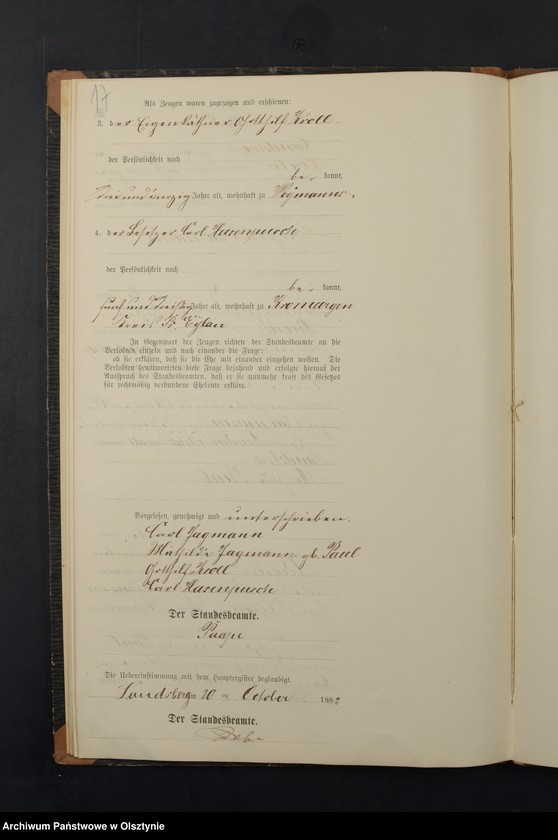 17
Als Zeugen waren zugezogen und erschienen:
3. der Eigenkäthner Gotthilf Kroll
der Persönlichkeit nach
be- kannt,
drei und vierzig Jahre alt, wohnhaft zu Weymanns,
4. der Besitzer Carl Hasenpusch
der Persönlichkeit nach
be- kannt,
fünf und dreißig Jahre alt, wohnhaft zu Kromargen
Kreis Pr. Eylau
In Gegenwart der Zeugen richtete der Standesbeamte an die
Verlobten einzeln und nach einander die Frage:
ob sie erklären, daß sie die Ehe mit einander eingehen wollen. Die
Verlobten beantworteten diese Frage bejahend und erfolgte hierauf der
Ausspruch des Standesbeamten, daß er sie nunmehr kraft des Gesetzes
für rechtmäßig verbundene Eheleute erkläre.
Vorgelesen, genehmigt und unterschrieben.
Carl Jagmann
Mathilde Jagmann gb. Paul
Gotthilf Kroll
Carl Hasenpusch
Der Standesbeamte.
Paape
Die Uebereinstimmung mit dem Hauptregister beglaubigt
Landsberg am 20 ten October 1882
Der Standesbeamte.
Archiwum Państwowe w Olsztynie